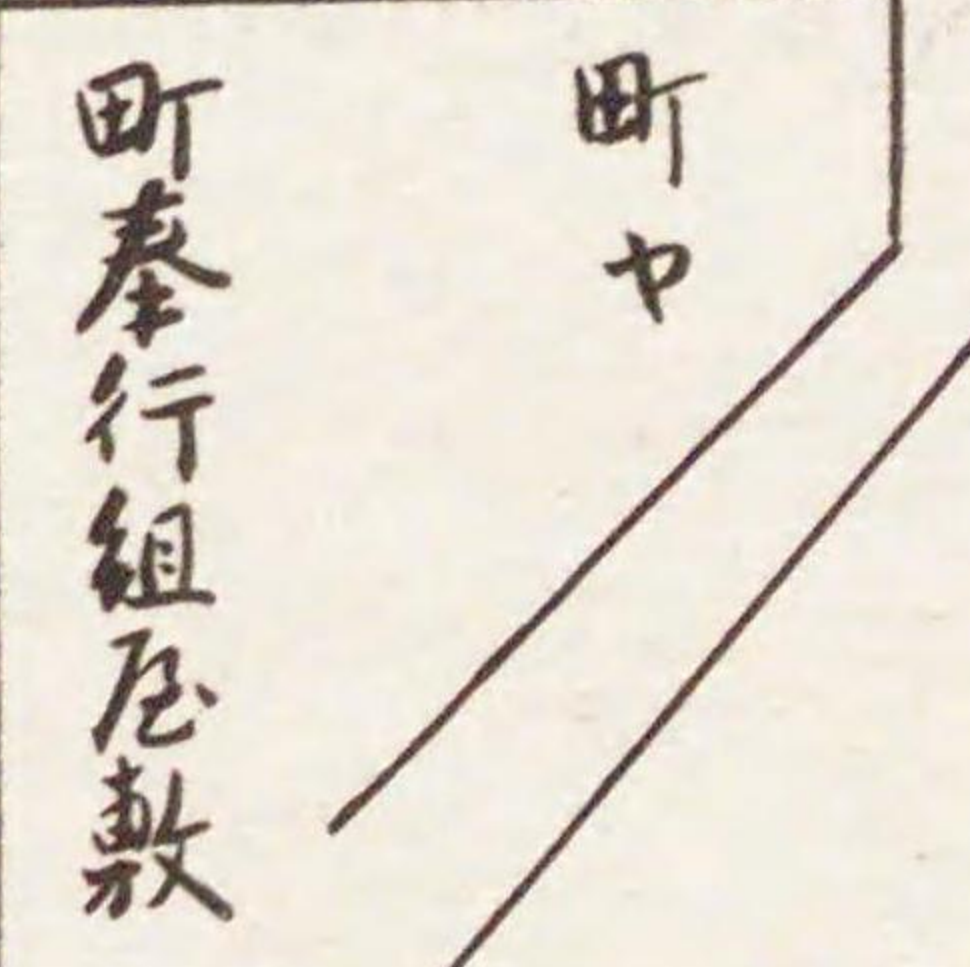 町ヤ
町奉行組屋敷